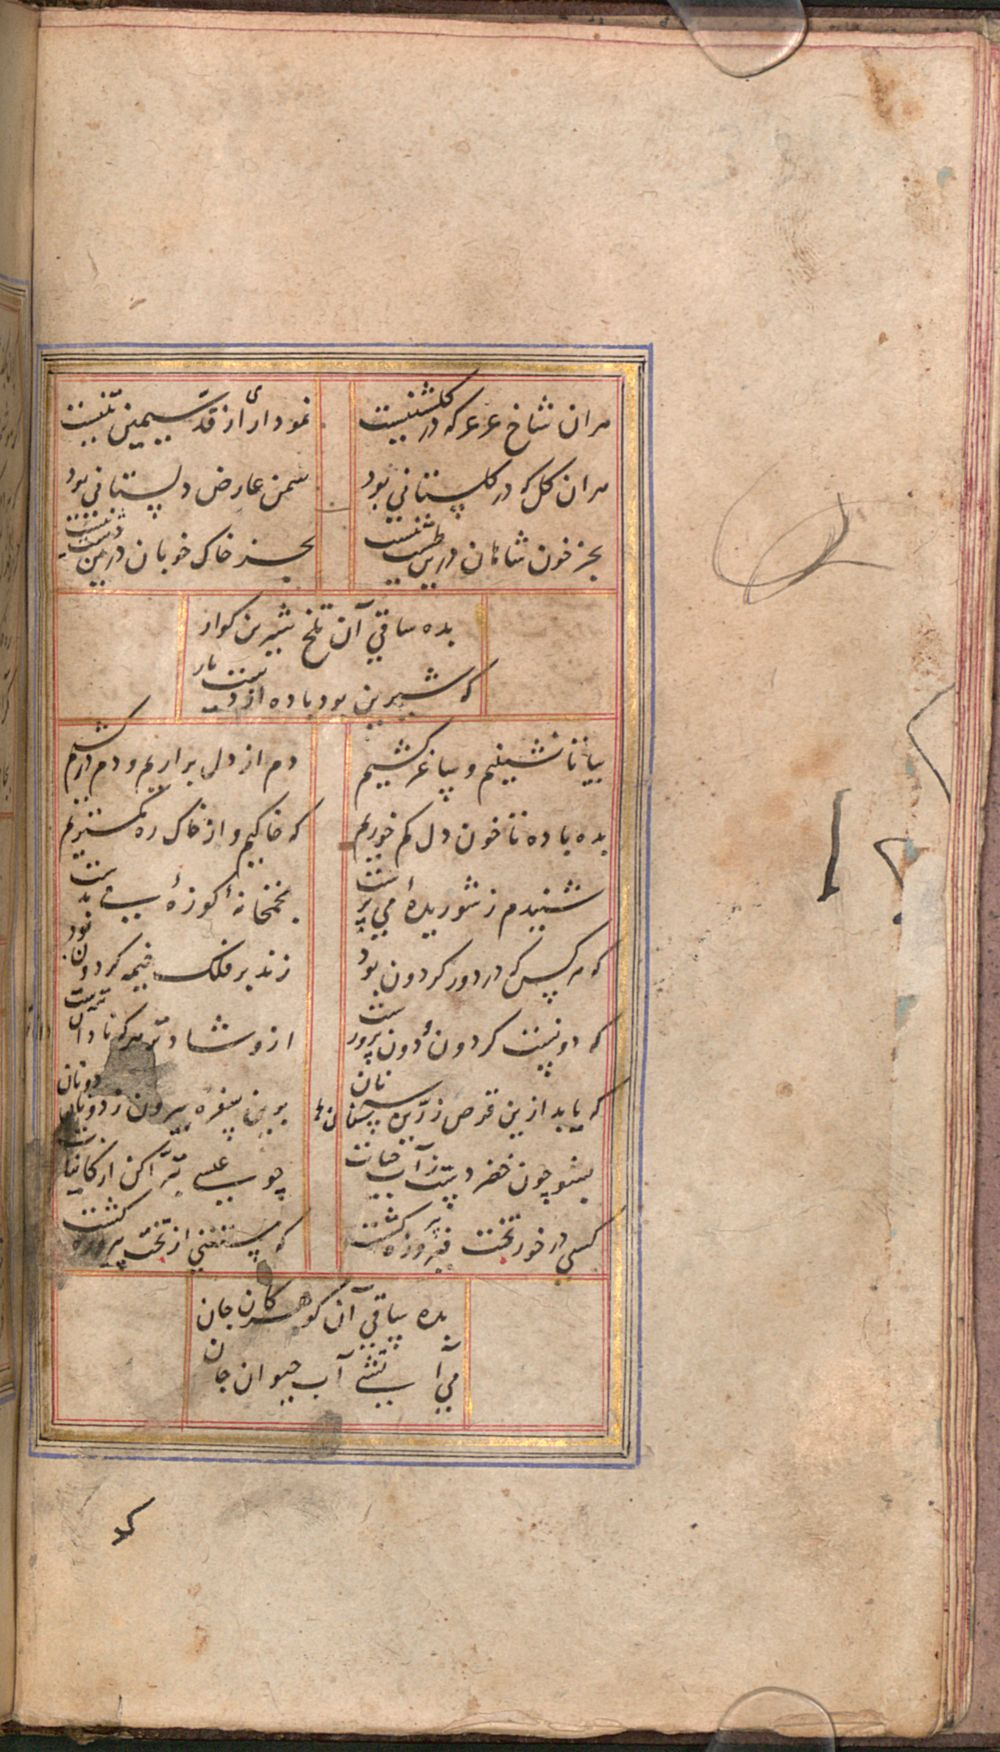 هران شاخ عرعر که در گلشنیست نموداری از قد سیمین تنیست
هران گل که در گلستانی بود سمن عارض دلستانی بود
بجز خون شاهان درین طشت نیست بجز خاک خوبان درین دشت نیست
بده ساقی آن تلخ شیرین گوار
که شیرین بود باده از دست یار
بیا تا نشینیم و ساغر کشیم دم از دل براریم و دم درکشیم
بده باده تا خون دل کم خوریم که خاکیم و از خاک ره کمتریم
شنیدم ز شوریدهٔ می پرست بخمخانهٔ کوزهٔ می بدست
که هر کس که در دور گردون بود زند بر فلک خیمه گر دون بود
که دونست گردون و دون پرورست ازو شادتر هر که نادان ترست
که یابد ازین قرص زرین سنان نان برین سفره بیرون ز دونان دونان
بشو چون خضر دست ز آب حیات چو عیسی تبرّا کن از کاینات
کسی در خور تخت فیروزه گشت که مستغنی از تخت پیروزه گشت
بده ساقی آن گوهر کان جان
می آب نی آب حیوان جان
که